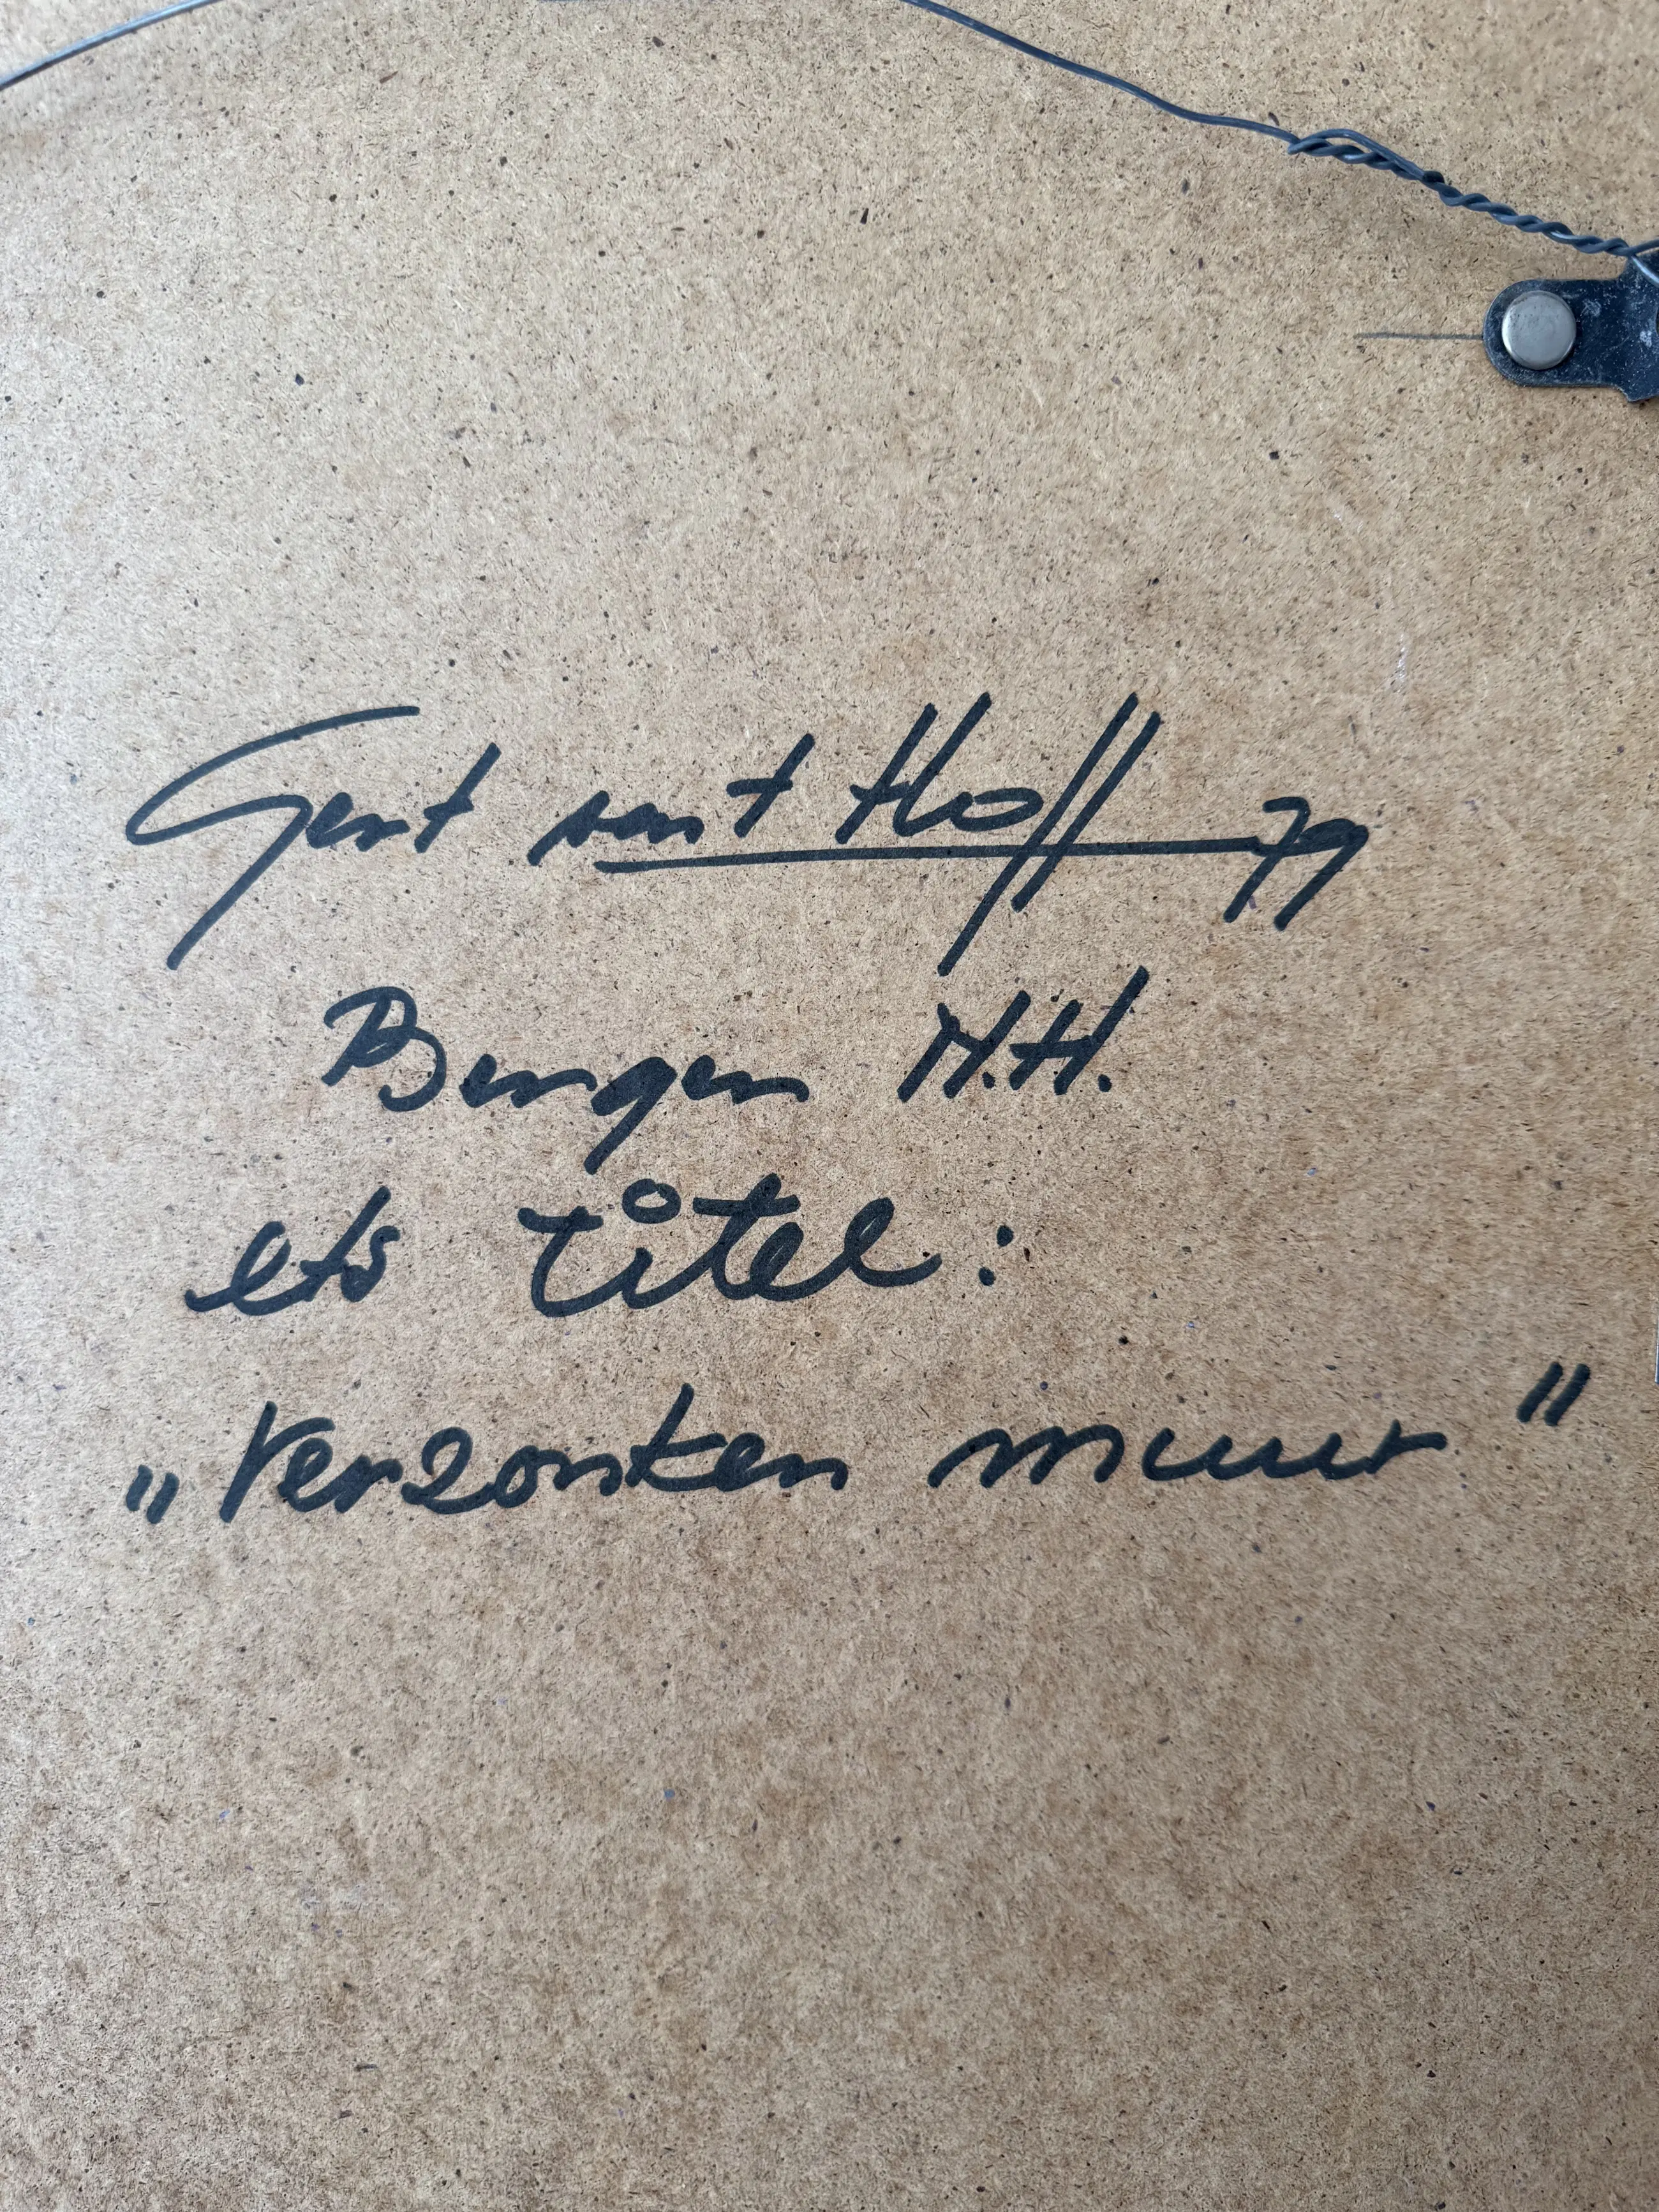 Gert van 't Hoff 79
Bergen N.H.
ets titel:
„Verzonken muur"